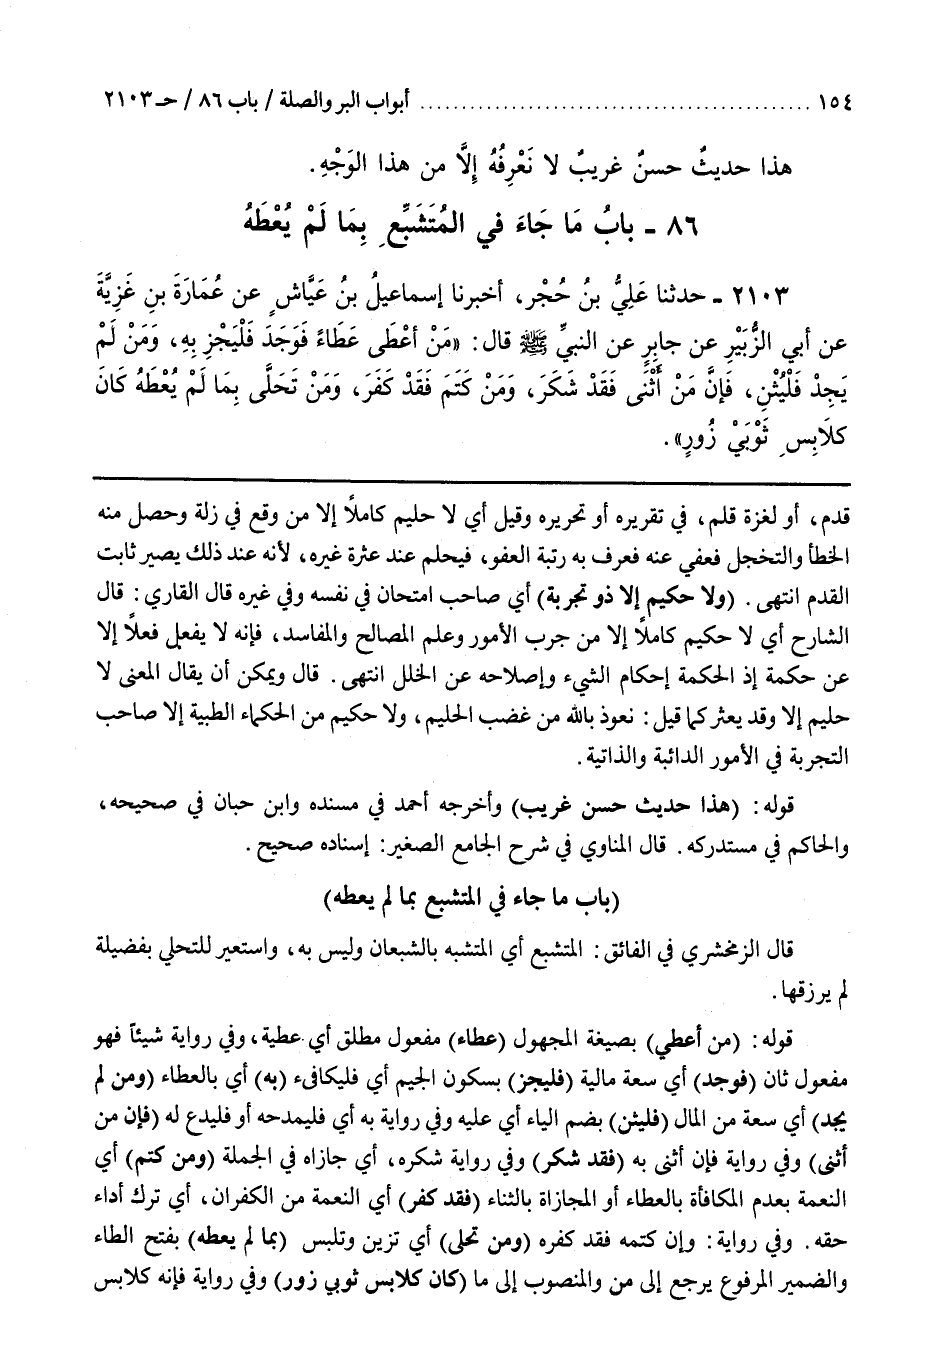 ١٥٤ ............................................... أبواب البر والصلة / باب ٨٦ / حـ ٢١٠٣
هذا حديثٌ حسنٌ غريبٌ لا نَعْرِفُهُ إلَّا من هذا الوَجْهِ.
٨٦ - بابُ مَا جَاءَ في المُتَشَبِّعِ بِمَا لَمْ يُعْطَهُ
٢١٠٣ - حدثنا عَلِيُّ بنُ حُجْرٍ، أخبرنا إسماعيلُ بنُ عَيَّاشٍ عن عُمَارَةَ بنِ غَزِيَّةَ
عن أبي الزُّبَيْرِ عن جابِرٍ عن النبيِّ ﷺ قال: «مَنْ أعْطَى عَطَاءً فَوَجَدَ فَلْيَجْزِ بِهِ، وَمَنْ لَمْ
يَجِدْ فَلْيُثْنِ، فَإنَّ مَنْ أَثْنَى فَقَدْ شَكَرَ، وَمَنْ كَتَمَ فَقَدْ كَفَرَ، وَمَنْ تَحَلَّى بِمَا لَمْ يُعْطَهُ كَانَ
كلَابِسِ ثَوْبَيْ زُورٍ».
قدم، أو لغزة قلم، في تقريره أو تحريره وقيل أي لا حليم كاملاً إلا من وقع في زلة وحصل منه
الخطأ والتخجل فعفي عنه فعرف به رتبة العفو، فيحلم عند عثرة غيره، لأنه عند ذلك يصير ثابت
القدم انتهى. (ولا حكيم إلا ذو تجربة) أي صاحب امتحان في نفسه وفي غيره قال القاري: قال
الشارح أي لا حكيم كاملاً إلا من جرب الأمور وعلم المصالح والمفاسد، فإنه لا يفعل فعلاً إلا
عن حكمة إذ الحكمة إحكام الشيء وإصلاحه عن الخلل انتهى. قال ويمكن أن يقال المعنى لا
حليم إلا وقد يعثر كما قيل: نعوذ بالله من غضب الحليم، ولا حكيم من الحكماء الطبية إلا صاحب
التجربة في الأمور الدائبة والذاتية.
قوله: (هذا حديث حسن غريب) وأخرجه أحمد في مسنده وابن حبان في صحيحه،
والحاكم في مستدركه. قال المناوي في شرح الجامع الصغير: إسناده صحيح.
(باب ما جاء في المتشبع بما لم يعطه)
قال الزمخشري في الفائق: المتشبع أي المتشبه بالشبعان وليس به، واستعير للتحلي بفضيلة
لم يرزقها.
قوله: (من أعطي) بصيغة المجهول (عطاء) مفعول مطلق أي عطية، وفي رواية شيئاً فهو
مفعول ثان (فوجد) أي سعة مالية (فليجز) بسكون الجيم أي فليكافىء (به) أي بالعطاء (ومن لم
يجد) أي سعة من المال (فليثن) بضم الياء أي عليه وفي رواية به أي فليمدحه أو فليدع له (فإن من
أثنى) وفي رواية فإن أثنى به (فقد شكر) وفي رواية شكره، أي جازاه في الجملة (ومن كتم) أي
النعمة بعدم المكافأة بالعطاء أو المجازاة بالثناء (فقد كفر) أي النعمة من الكفران، أي ترك أداء
حقه. وفي رواية: وإن كتمه فقد كفره (ومن تحلى) أي تزين وتلبس (بما لم يعطه) بفتح الطاء
والضمير المرفوع يرجع إلى من والمنصوب إلى ما (كان كلابس ثوبي زور) وفي رواية فإنه كلابس